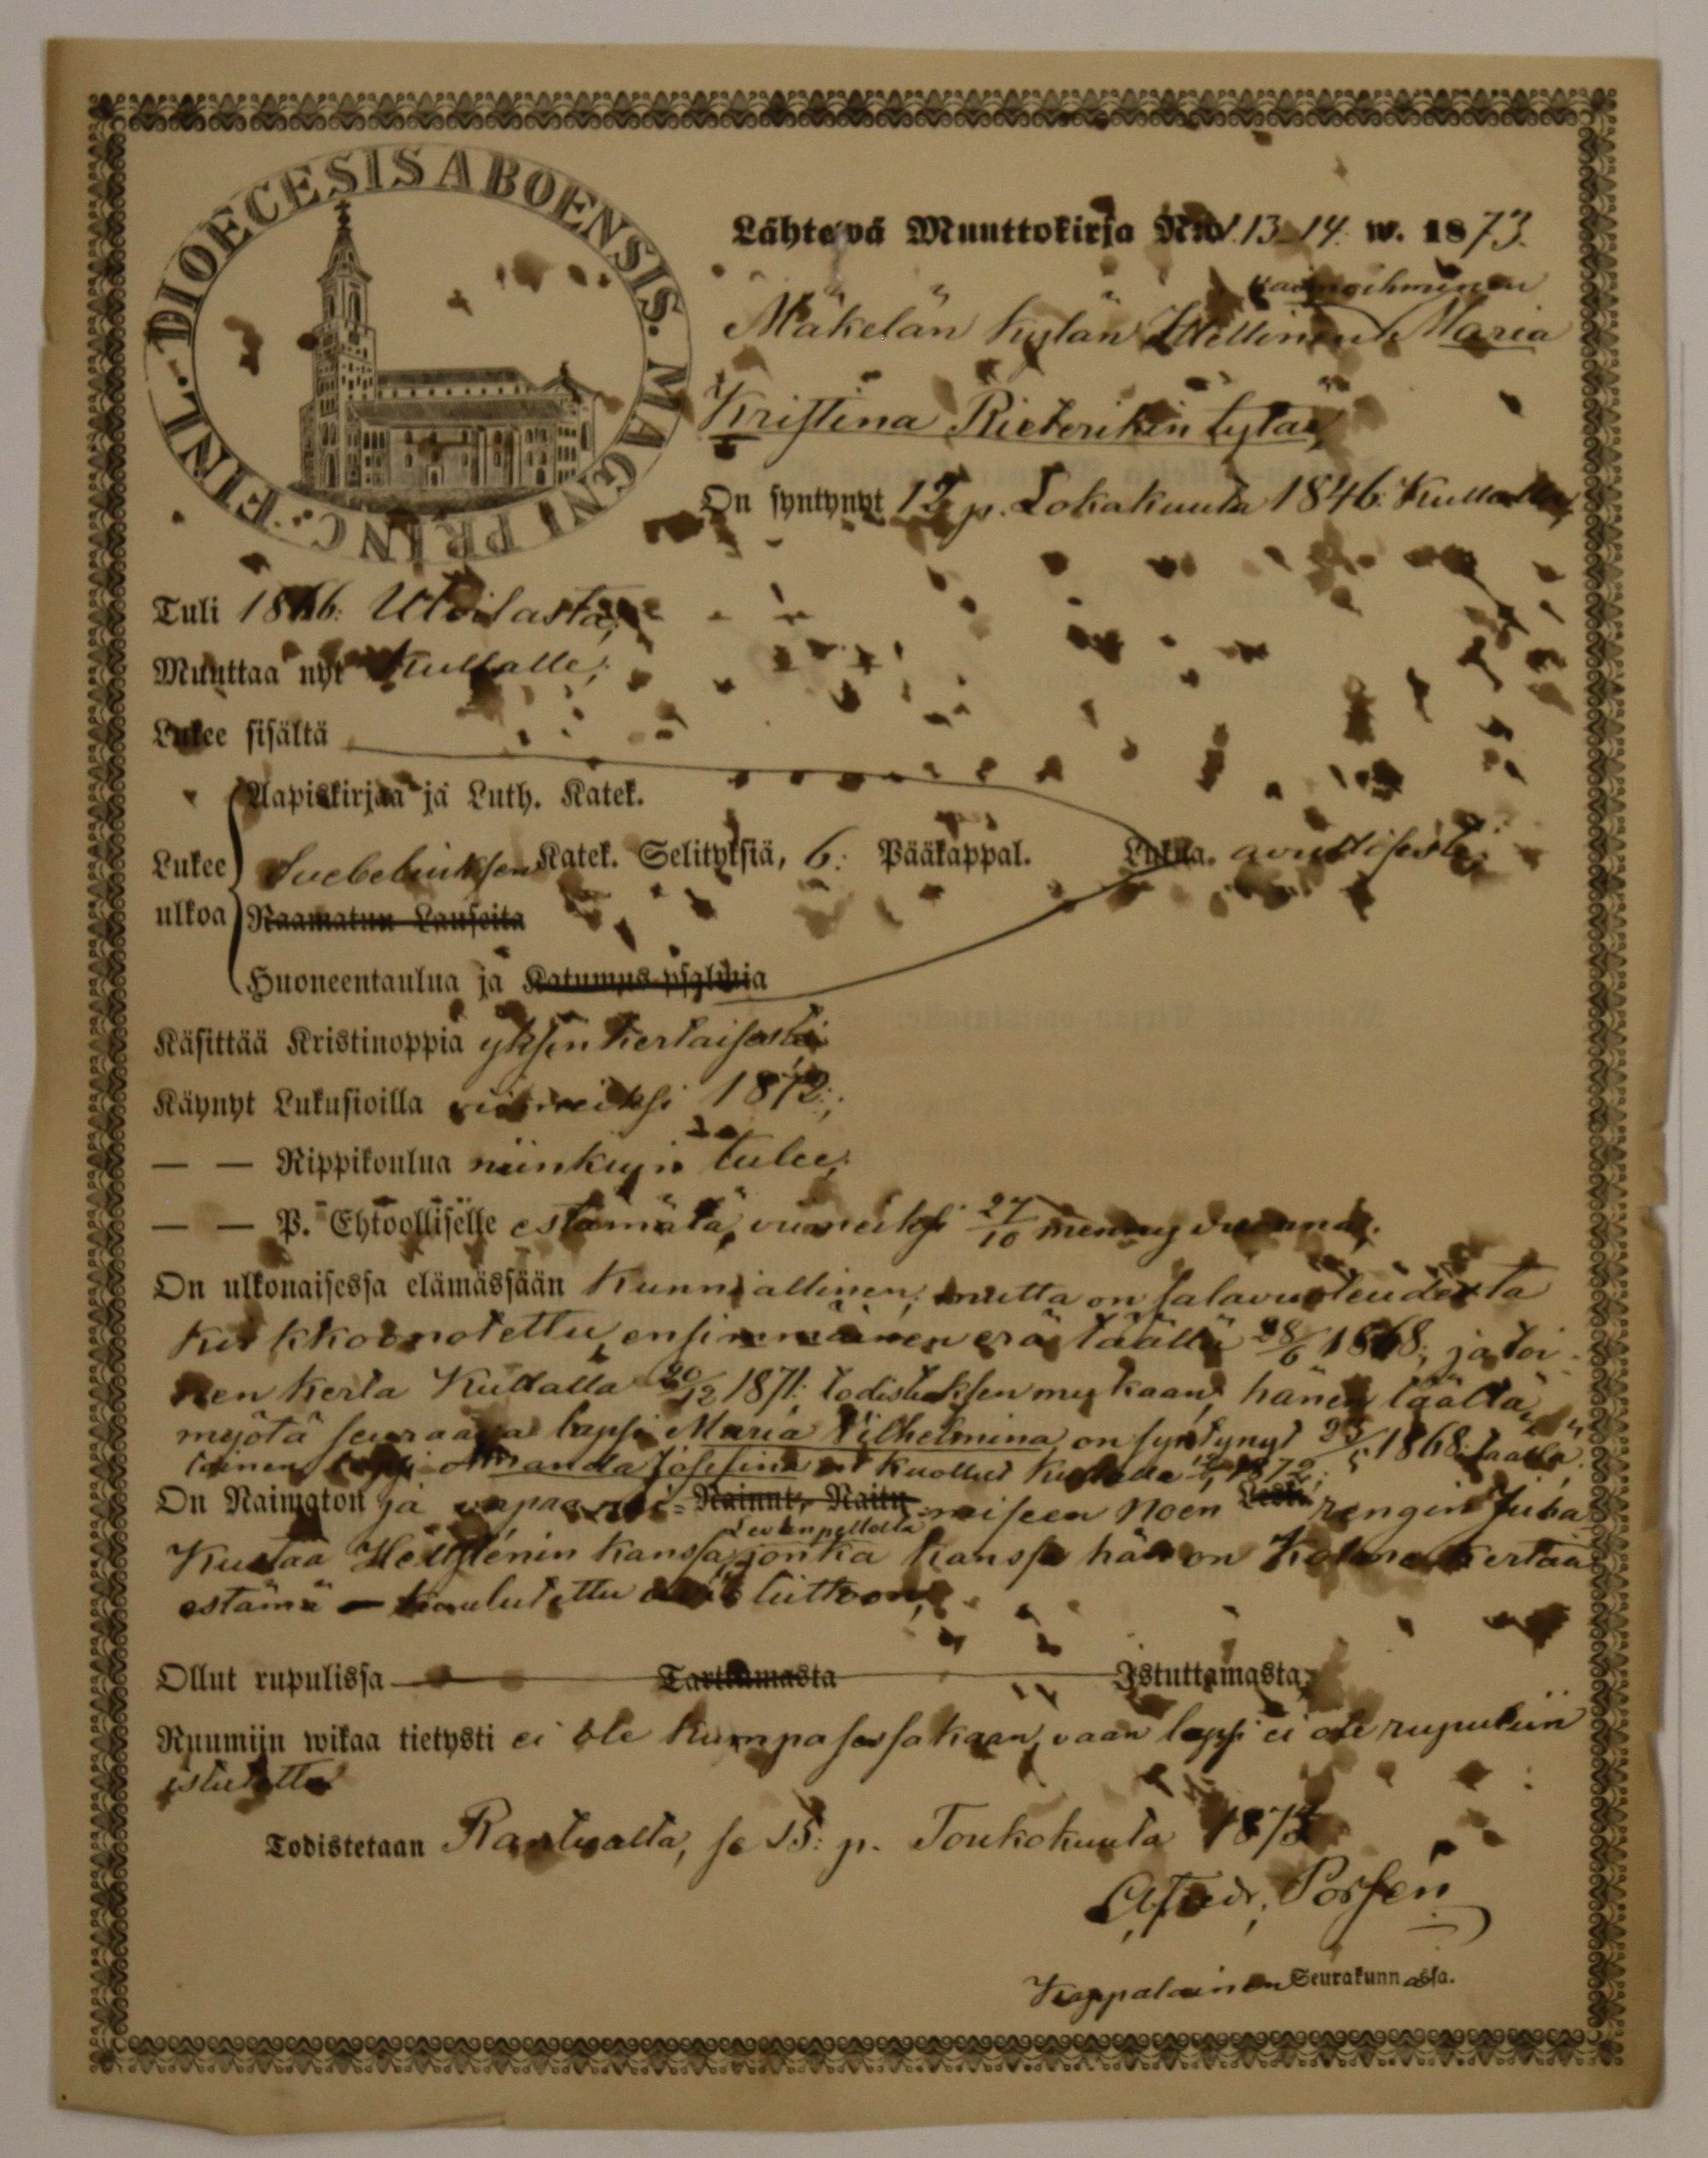 DIOECESIS ABOENSIS. MAGNI PRINC. FINL.
Lähtewä Muuttokirja N:o 13_14. w. 1873.
vaimoihminen
Mäkelän kylän Maria
Kristina Rieterikin tytär,
On syntynyt 12 p. Lokakuuta 1846. Kullalla,
Tuli 1866: Ulvilasta,
Muuttaa nyt Kullalle;
Lukee sisältä
Aapiskirjaa ja Luth. Katek.
Lukee ulkoa
Svebeliuksen Katek. Selityksiä, 6: Pääkappal. Lukua. avullisesti
Raamatun Lauseita
Huoneentaulua ja Katumus-psalmia
Käsittää Kristinoppia yksinkertaisesti
Käynyt Lukusioilla viimeiksi 1872;
— — Rippikoulua niinkuin tulee;
— — P. Ehtoolliselle estämätä, viimeiksi 27/10 menny vuonna;
On ulkonaisessa elämässään kunniallinen, mutta on salavuoteudesta
kirkkoonotettu, ensimmäinen erä täällä 28/6 1868; ja toi-
nen kerta Kullalla 20/12 1871; todistuksen mukaan, hänen täältä
myötä seuraava lapsi Maria Vilhelmina on syntynyt 23/5 1868 täällä;
toinen lapsi Amanda Josefina on kuollut Kullalla 1872;
On Naimaton ja vapaa nai- Nainut, Naitu miseen Noen Leski rengin Juha
Levanpellolla
Kustaa Hellstenin kanssa, jonka kanssa hän on kolme kertaa
estämä – kuulutettu avioliittoon,
Ollut rupulissa Tarttumasta Istuttamasta
Ruumiin wikaa tietysti ei ole kumpasessakaan, vaan lapsi ei ole rupuliin
istutettu
Todistetaan Pz Se 15: p. Toukokuuta 1873
Porsén
Kappalainen Seurakunnassa.